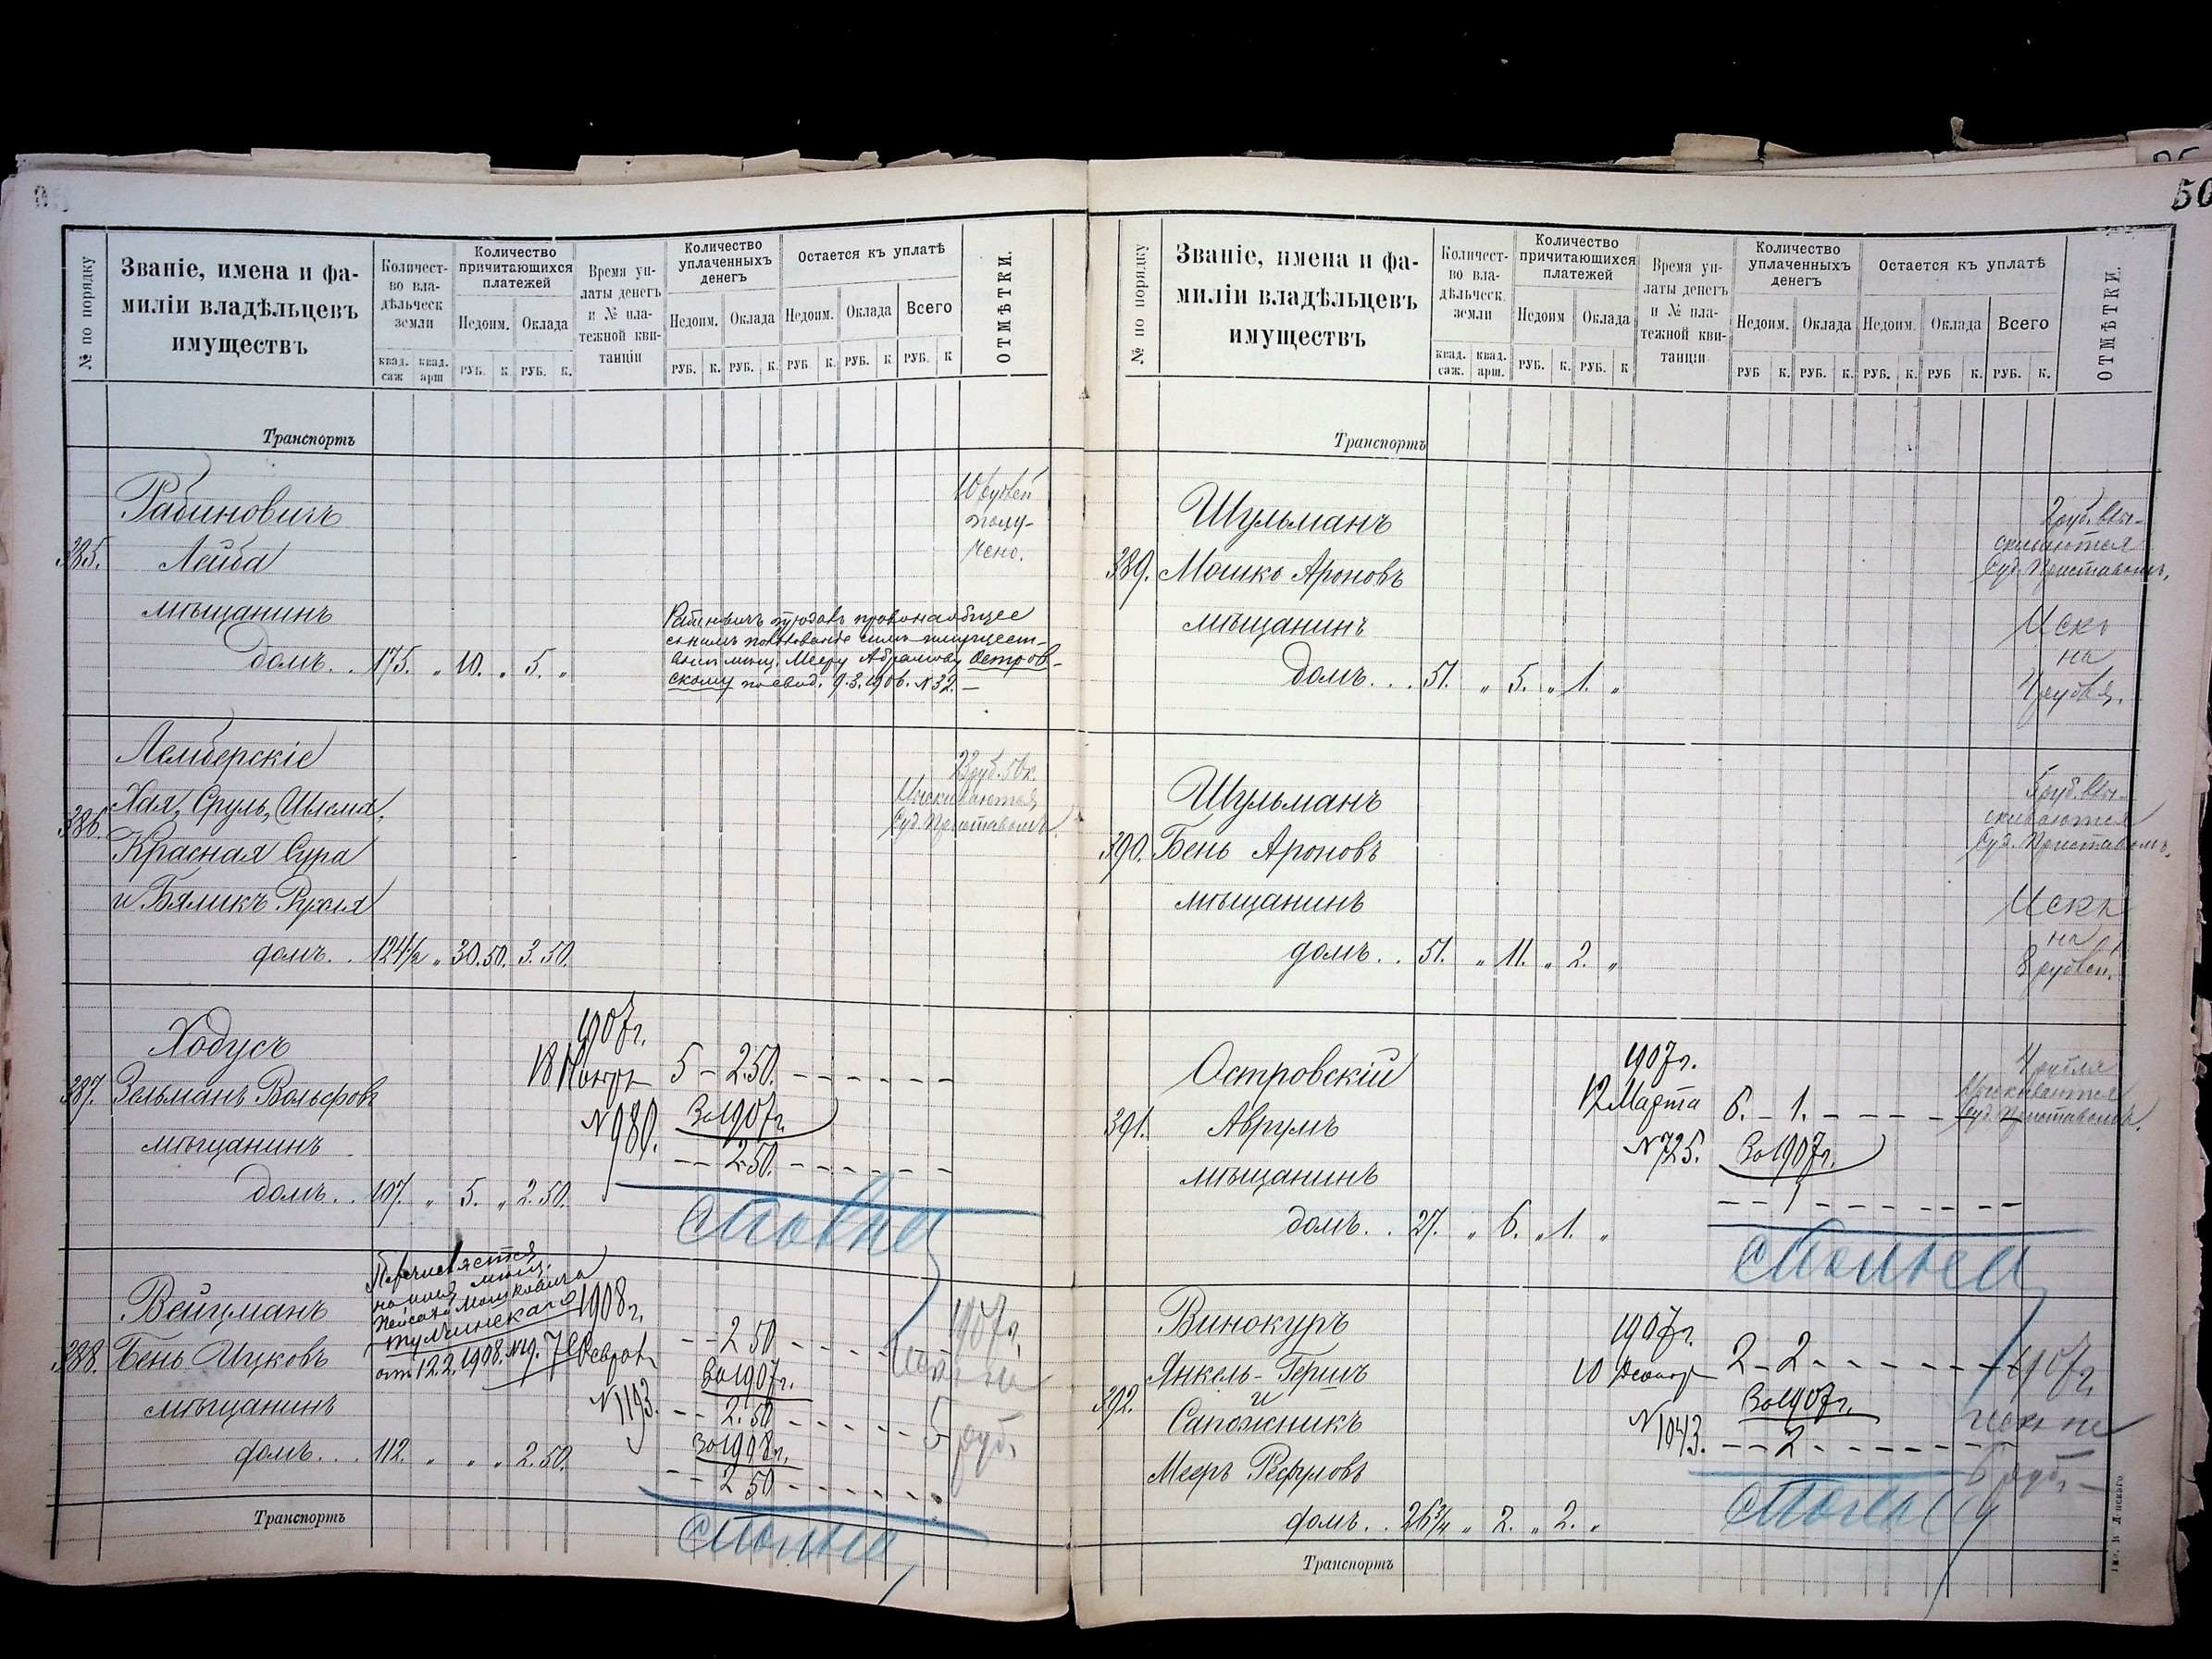 50
№ по порядку
Званіе, имена и фа-
миліи владѣльцевъ
имуществъ
Количест-
во вла-
дѣльческ
земли
квад. саж квад. арш
Количество
причитающихся
платежей
Недоим. Оклада
РУБ. К. РУБ. К.
Время уп-
латы денегъ
и № пла-
тежной кви-
танціи
Количество
уплаченныхъ
денегъ
Недоим. Оклада
РУБ. К. РУБ. К.
Остается къ уплатѣ
Недоим. Оклада Всего
РУБ К. РУБ. К. РУБ. К
ОТМѢТКИ.
Транспортъ
Рабиновичъ
385. Лейба
мѣщанинъ
домъ. . 175. „ 10. „ 5. „
10 рублей
полу-
чено.
Абрамову Остров-
скому по свид. 9.3.1906. N 32. —
Лемберскіе
386. Хая, Сруль, Шлема,
Красная Сура
и Бяликъ Рухля
домъ. . 124½ „ 30.50. 3.50.
23 руб. 50 к.
взыскиваются
Суд. Приставомъ.
Ходусъ
387. Зельманъ Вольфовъ
мѣщанинъ
домъ. . 107. „ 5. „ 2.50.
1907 г.
18 Ноября 5 - 2.50.
N 980. За 1907 г.
2.50.
Вейцманъ
388. Бень Ицковъ
мѣщанинъ
домъ. . . 112. „ „ „ 2.50.
Перечисляется
на имя мѣщ.
Пейсаха Мошковича
Тульчинскаго
от 12.2.1908. №19.
1908 г.
7 Феврал
N 1193.
2 50
За 1907 г.
2.50
За 1908 г.
2 50
1907 г.
5 руб.
Транспортъ
№ по порядку
Званіе, имена и фа-
миліи владѣльцевъ
имуществъ
Количест-
во вла-
дѣльческ.
земли
квад. саж. квад. арш.
Количество
причитающихся
платежей
Недоим Оклада
РУБ. К. РУБ. К
Время уп-
латы денегъ
и № пла-
тежной кви-
танціи
Количество
уплаченныхъ
денегъ
Недоим. Оклада
РУБ К. РУБ. К.
Остается къ уплатѣ
Недоим. Оклада Всего
РУБ. К. РУБ К. РУБ. К.
ОТМѢТКИ.
Транспортъ
Шульманъ
389. Мошко Ароновъ
мѣщанинъ
домъ. . . 51. „ 5. „ 1. „
2 руб. взы-
скиваются
Суд. Приставомъ.
Искъ
на
4 рубля.
Шульманъ
390. Бень Ароновъ
мѣщанинъ
домъ. . 51. „ 11. „ 2. „
5 руб. взы-
скиваются
Суд. Приставомъ.
Искъ
на
8 рублей.
Островскій
391. Аврумъ
мѣщанинъ
домъ. . 27. „ 6. „ 1. „
1907 г.
12 Марта 6. - 1.
N 725. За 1907 г.
1
4 рубля
взыскиваются
Суд. Приставомъ.
Винокуръ
Янкель-Гершъ
392. и
Сапожникъ
Мееръ Рефуловъ
домъ. . 26¾ „ 2. „ 2. „
1907 г.
10 Декабр 2 - 2
N 1043. За 1907 г.
2
1907 г.
искъ на
6 руб. -
Транспортъ